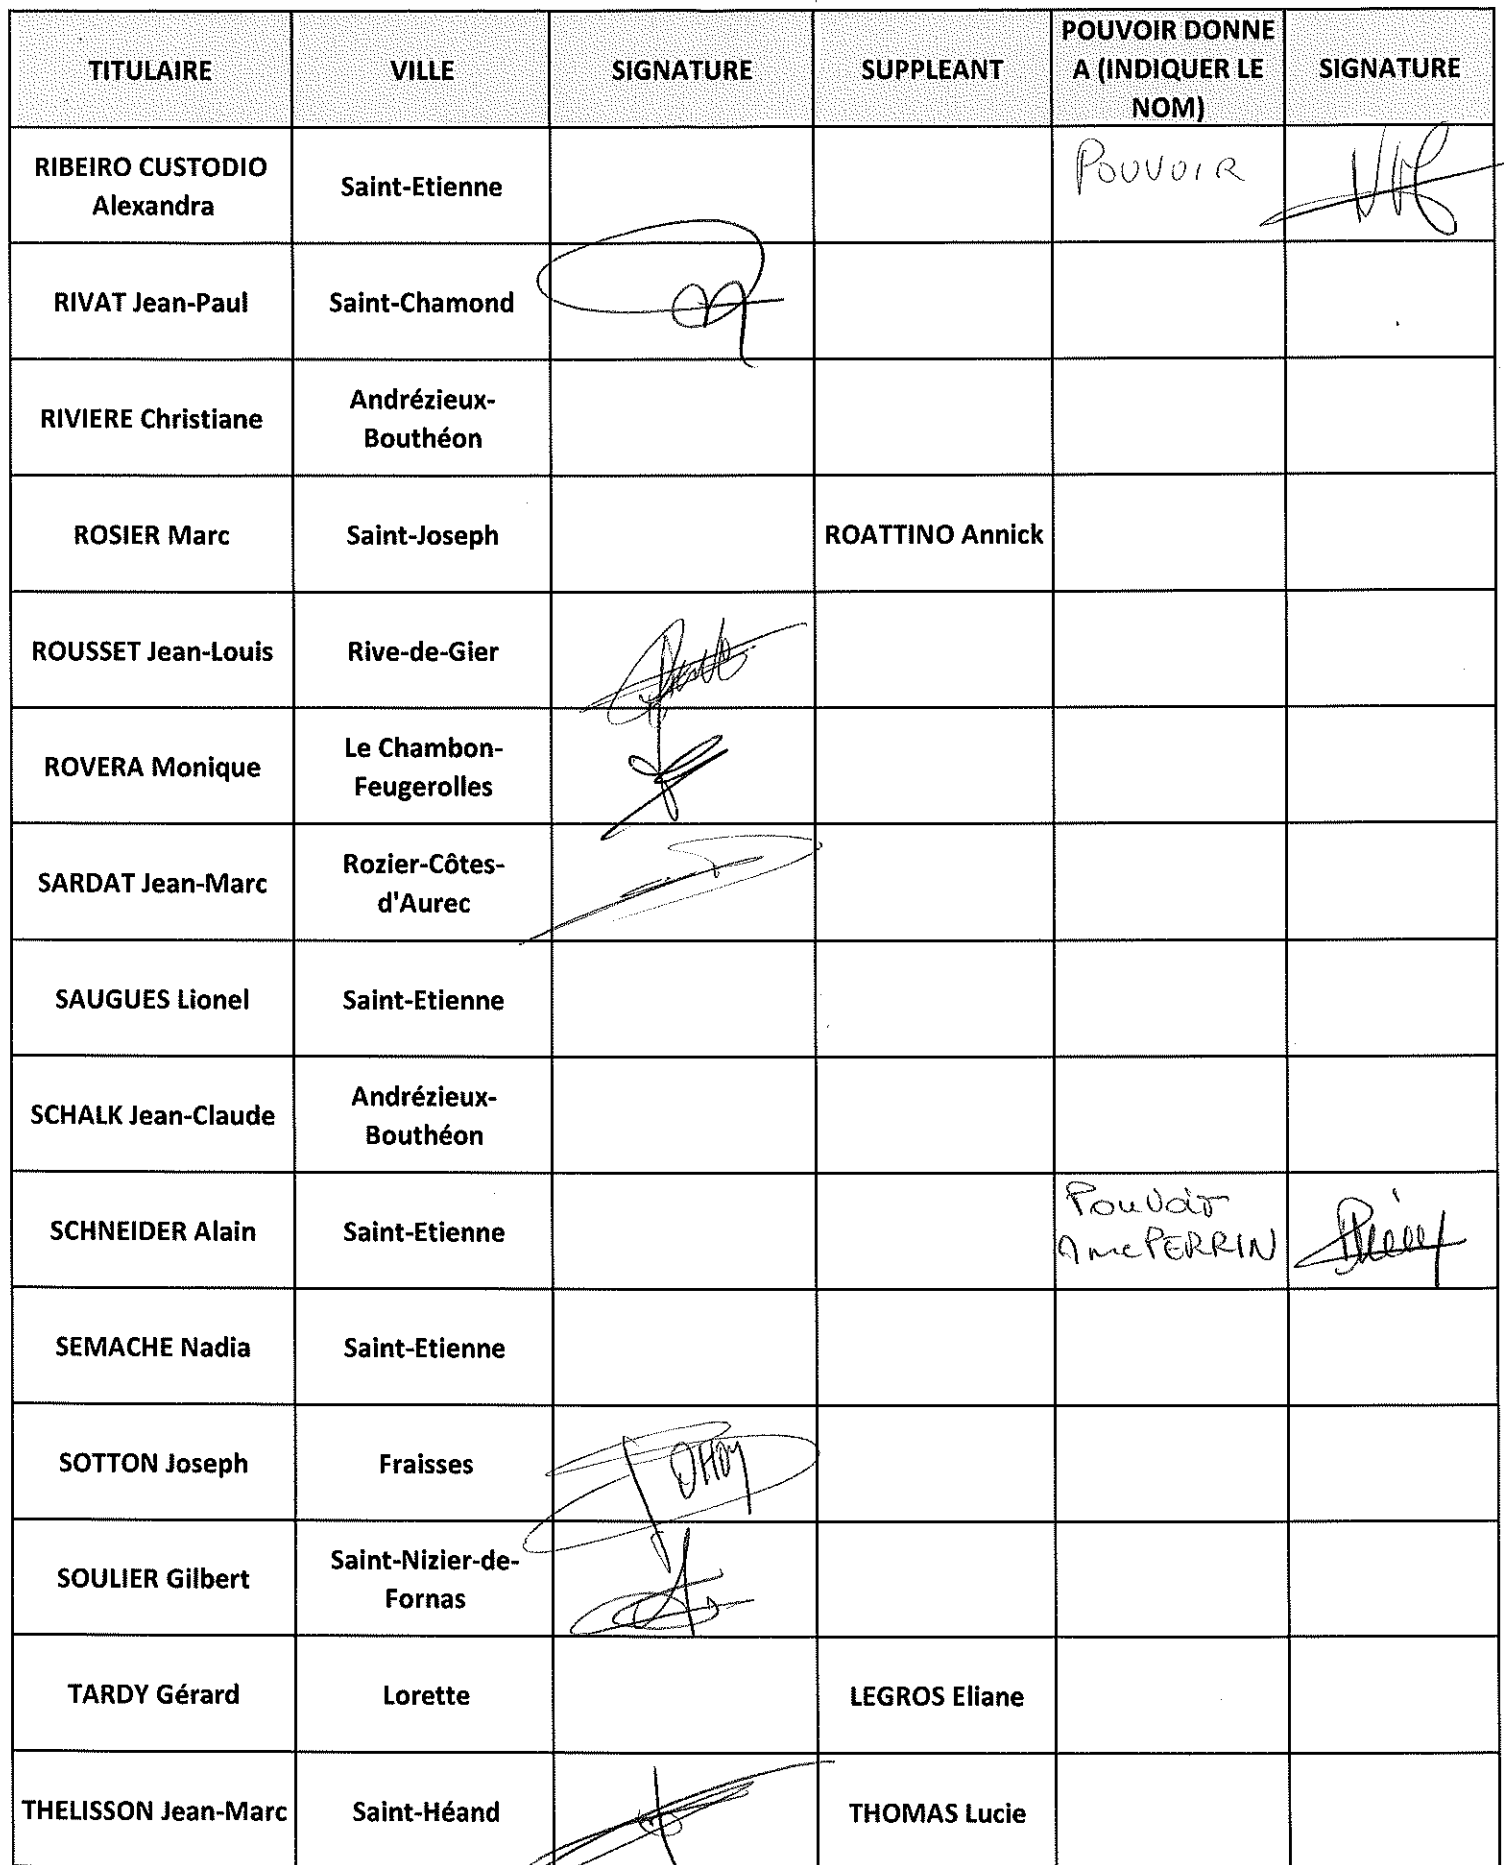 TITULAIRE
VILLE
SIGNATURE
SUPPLEANT
POUVOIR DONNE
A (INDIQUER LE
NOM)
SIGNATURE
RIBEIRO CUSTODIO
Alexandra
Saint-Etienne
POUVOIR
RIVAT Jean-Paul
Saint-Chamond
RIVIERE Christiane
Andrézieux-
Bouthéon
ROSIER Marc
Saint-Joseph
ROATTINO Annick
ROUSSET Jean-Louis
Rive-de-Gier
ROVERA Monique
Le Chambon-
Feugerolles
SARDAT Jean-Marc
Rozier-Côtes-
d'Aurec
SAUGUES Lionel
Saint-Etienne
SCHALK Jean-Claude
Andrézieux-
Bouthéon
SCHNEIDER Alain
Saint-Etienne
Pouvoir
PERRIN
SEMACHE Nadia
Saint-Etienne
SOTTON Joseph
Fraisses
SOULIER Gilbert
Saint-Nizier-de-
Fornas
TARDY Gérard
Lorette
LEGROS Eliane
THELISSON Jean-Marc
Saint-Héand
THOMAS Lucie